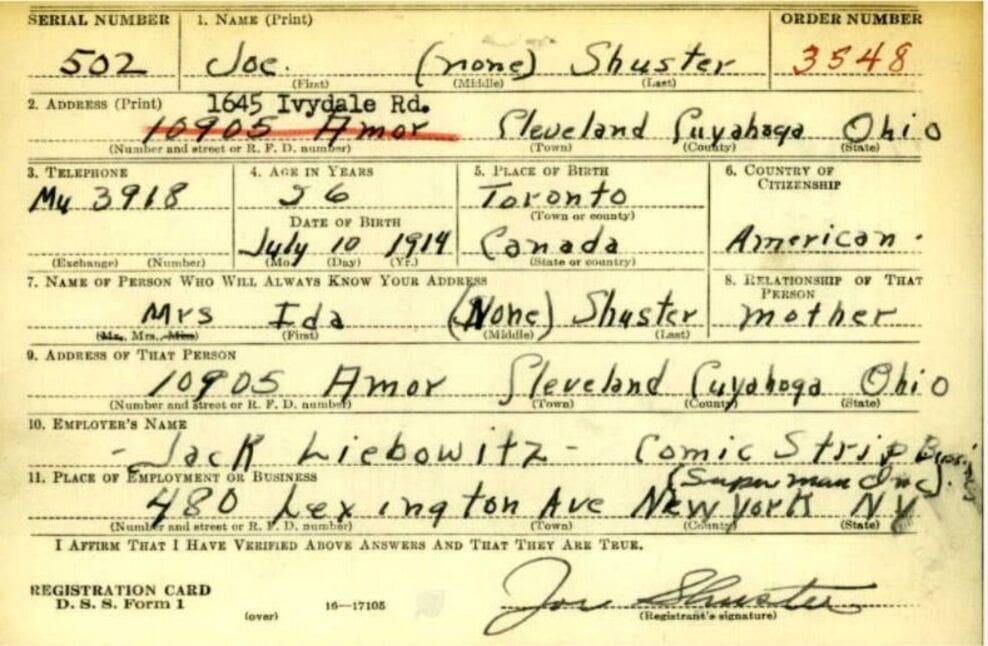 SERIAL NUMBER 1. NAME (Print) ORDER NUMBER
502 Joe. (none) Shuster 3548
(First) (Middle) (Last)
2. ADDRESS (Print) 1645 Ivydale Rd.
10905 Amor Cleveland Cuyahoga Ohio
(Number and street or R. F. D. number) (Town) (County) (State)
3. TELEPHONE 4. AGE IN YEARS 5. PLACE OF BIRTH 6. COUNTRY OF CITIZENSHIP
Mu 3918 26 Toronto
(Town or county)
DATE OF BIRTH
July 10 1914 Canada American.
(Exchange) (Number) (Mo.) (Day) (Yr.) (State or country)
7. NAME OF PERSON WHO WILL ALWAYS KNOW YOUR ADDRESS 8. RELATIONSHIP OF THAT PERSON
Mrs Ida (None) Shuster mother
(Mr., Mrs., Miss) (First) (Middle) (Last)
9. ADDRESS OF THAT PERSON
10905 Amor Cleveland Cuyahoga Ohio
(Number and street or R. F. D. number) (Town) (County) (State)
10. EMPLOYER'S NAME
- Jack Liebowitz - Comic Strip Business
11. PLACE OF EMPLOYMENT OR BUSINESS (Superman Inc).
480 Lexington Ave New York NY
(Number and street or R. F. D. number) (Town) (County) (State)
I AFFIRM THAT I HAVE VERIFIED ABOVE ANSWERS AND THAT THEY ARE TRUE.
REGISTRATION CARD
D. S. S. Form 1 (over) 16—17105
Joe Shuster
(Registrant's signature)